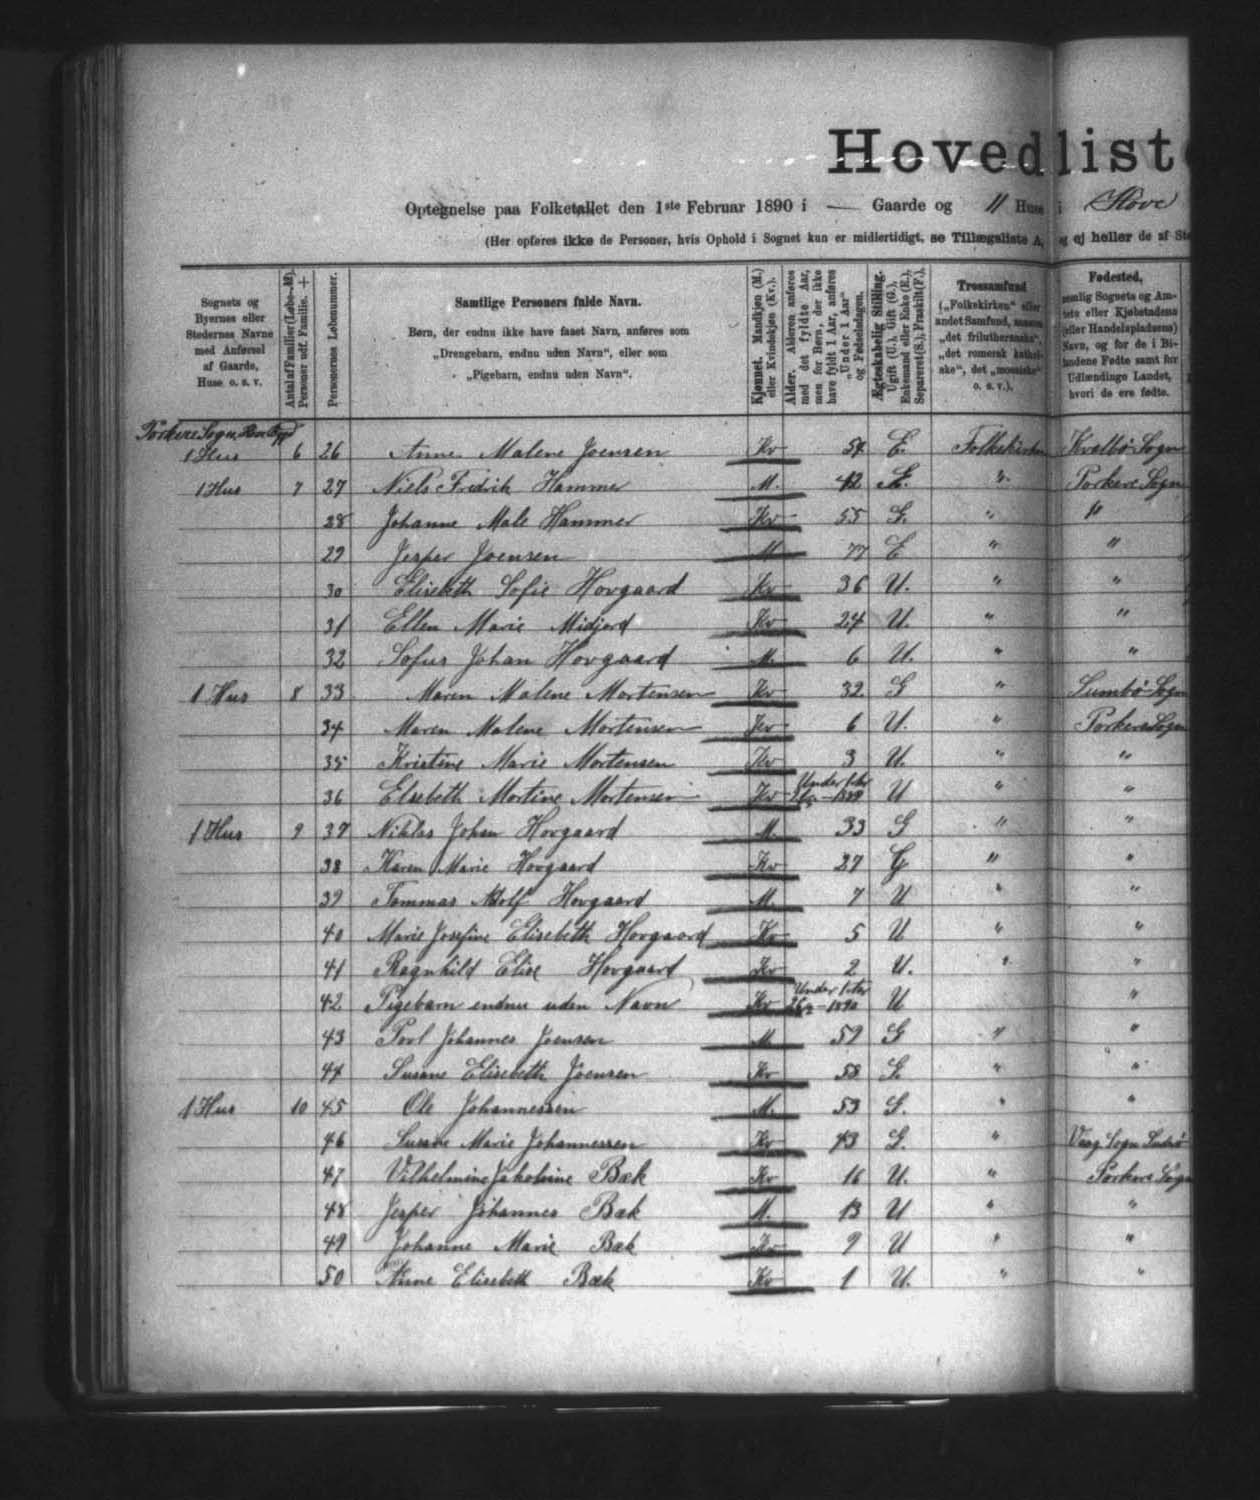 Hovedliste
Optegnelse paa Folketallet den 1ste Februar 1890 i — Gaarde og 11 Huse i Hove
(Her opføres ikke de Personer, hvis Ophold i Sognet kun er midlertidigt, se Tillægsliste A, og ej heller de af
Sognets og Byernes eller Stedernes Navne med Anførsel af Gaarde, Huse o. s. v.
Antal af Familier (Løbe-№). Personer udf. Familie. +
Personernes Løbenummer.
Samtlige Personers fulde Navn.
Børn, der endnu ikke have faaet Navn, anføres som
„Drengebarn, endnu uden Navn“, eller som
„Pigebarn, endnu uden Navn“.
Kjønnet. Mandkjøn (M.) eller Kvindekjøn (Kv.).
Alder. Alderen anføres med det fyldte Aar, men for Børn, der ikke have fyldt 1 Aar, anføres „Under 1 Aar“ og Fødselsdagen.
Ægteskabelig Stilling. Ugift (U.), Gift (G.), Enkemand eller Enke (E.), Separeret (S.), Fraskilt (F.).
Trossamfund („Folkekirken“ eller andet Samfund, saasom „det frilutheranske“, „det romersk katholske“, det „mosaiske“ o. s. v.).
Fødested, nemlig Sognets og Amtets eller Kjøbstadens (eller Handelspladsens) Navn, og for de i Bilandene Fødte samt for Udlændinge Landet, hvori de ere fødte.
Porkere Sogn
1 Hus 6 26 Anne Malene Joensen Kv 54 E. Folkekirken Kvalbø Sogn
1 Hus 7 27 Niels Fredrik Hammer M. 42 G. " Porkere Sogn
28 Johanne Male Hammer Kv 55 G. " "
29 Jesper Joensen M 77 E " "
30 Elisebeth Sofie Hovgaard Kv 36 U. " "
31 Ellen Marie Midjord Kv 24 U. " "
32 Sofus Johan Hovgaard M. 6 U. " "
1 Hus 8 33 Maren Malene Mortensen Kv 32 G " Sumbø Sogn
34 Maren Malene Mortensen Kv 6 U. " Porkere Sogn
35 Kristine Marie Mortensen Kv 3 U. " "
36 Elsebeth Mortine Mortensen Kv Under 1 Aar 1889 U " "
1 Hus 9 37 Niklas Johan Hovgaard M. 33 G " "
38 Karen Marie Hovgaard Kv 27 G " "
39 Tommas Adolf Hovgaard M. 7 U " "
40 Marie Josefine Elisebeth Hovgaard Kv 5 U " "
41 Ragnhild Elise Hovgaard Kv 2 U. " "
42 Pigebarn endnu uden Navn Kv Under 1 Aar 26/1 - 1890 U "
43 Povl Johannes Joensen M. 59 G " "
44 Susane Elisebeth Joensen Kv 58 G. " "
1 Hus 10 45 Ole Johannessen M. 53 G. " "
46 Susane Marie Johannessen Kv 43 G. " Vaag Sogn Suderø
47 Vilhelmine Jakobine Bæk Kv 16 U. " Porkere Sogn
48 Jesper Johannes Bæk M. 13 U " "
49 Johanne Marie Bæk Kv 9 U " "
50 Anne Elisebeth Bæk Kv 1 U. " "